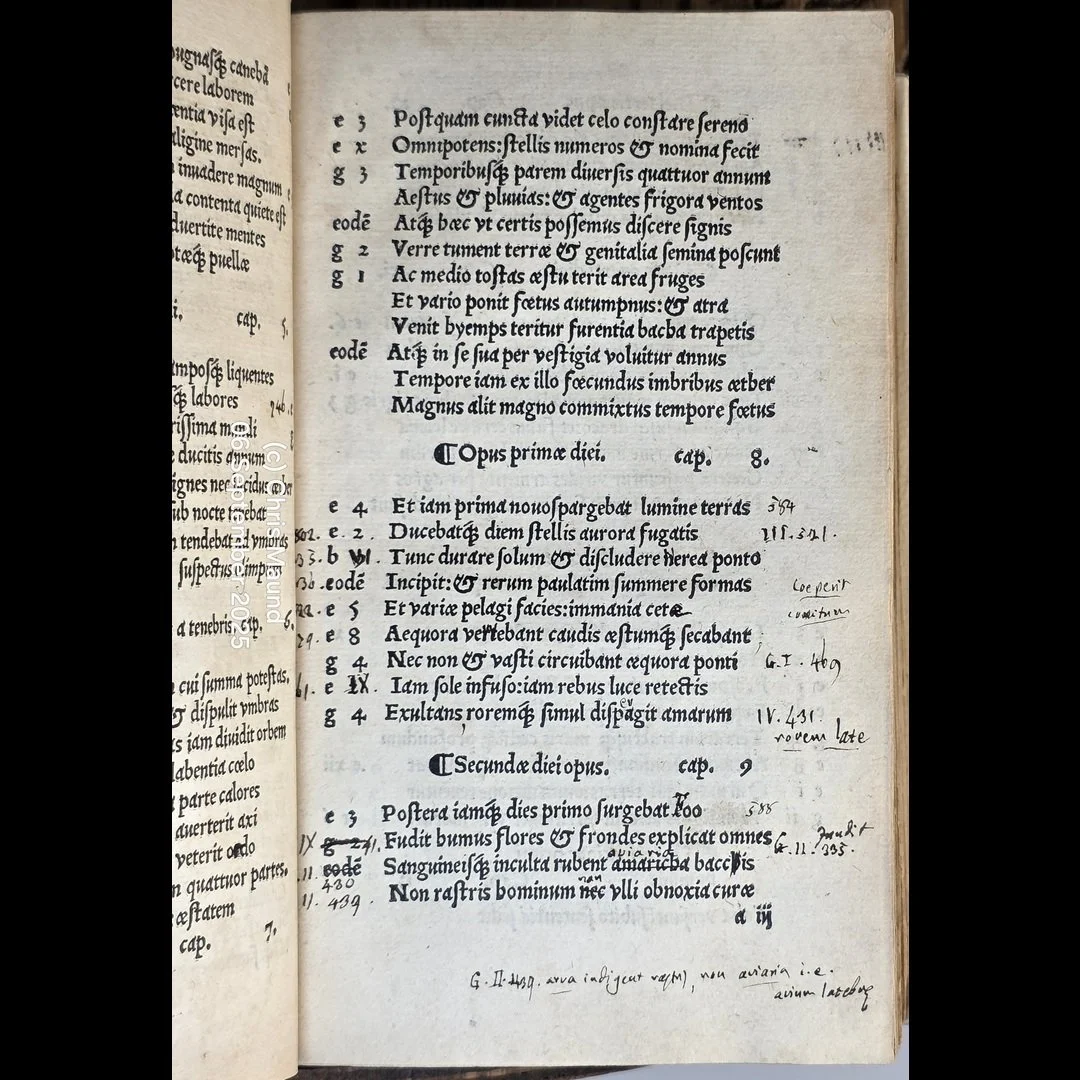 pugnasq́ꝫ canebā
rcere laborem
entia visa est
aligine mersas.
inuadere magnum
a contenta quiete est
diuertite mentes
otæq́ꝫ puellæ
cap. 5.
mposq́ꝫ liquentes
q́ꝫ labores 746.
rissima mundi
e ducitis annum
ignes nec lucidus æther
ub nocte ferebat
n tendebat ad vmbras
suspectus limpum
a tenebris. cap. 6.
cui summa potestas.
& dispulit vmbras
s iam diuidit orbem
labentia cœlo
a parte calores
auerterit axi
veterit ordo
n quattuor partes.
æstatem
cap. 7.
(c) Chris Maund
06 September 2025
e 3 Postquam cuncta videt celo constare sereno
e x Omnipotens:stellis numeros & nomina fecit
g 3 Temporibusq́ꝫ parem diuersis quattuor annum
Aestus & pluuias:& agentes frigora ventos
eodē Atq́ꝫ hæc vt certis possemus discere signis
g 2 Verre tument terræ & genitalia semina poscunt
g 1 Ac medio tostas æstu terit area fruges
Et vario ponit fœtus autumpnus:& atra
Venit hyemps teritur furentia bacha trapetis
eodē Atq́ꝫ in se sua per vestigia voluitur annus
Tempore iam ex illo fœcundus imbribus æther
Magnus alit magno commixtus tempore fœtus
¶Opus primæ diei. cap. 8.
e 4 Et iam prima nouo spargebat lumine terras 584
e . 2 . Ducebatq́ꝫ diem stellis aurora fugatis III.521.
b VI Tunc durare solum & discludere Nerea ponto
eodē Incipit:& rerum paulatim summere formas coeperit
e 5 Et variæ pelagi facies:immania cetæ
e 8 Aequora vertebant caudis æstumq́ꝫ secabant
g 4 Nec non & vasti circuibant æquora ponti G.I.469
e IX Iam sole infuso:iam rebus luce retectis
g 4 Exultans, roremq́ꝫ simul dispagit amarum IV.431.
rorem late
¶Secundæ diei opus. cap. 9
e 3 Postera iamq́ꝫ dies primo surgebat Eoo 588
IX g 2 Fudit humus flores & frondes explicat omnes G.II.335. Fundit
aviaria
eodē Sanguineisq́ꝫ inculta rubent amaricha baccis
430
non
439. Non rastris hominum nec vlli obnoxia curæ
a iij
G.II.439. arva indigent rastri, non aviaria i.e.
avium latebræ